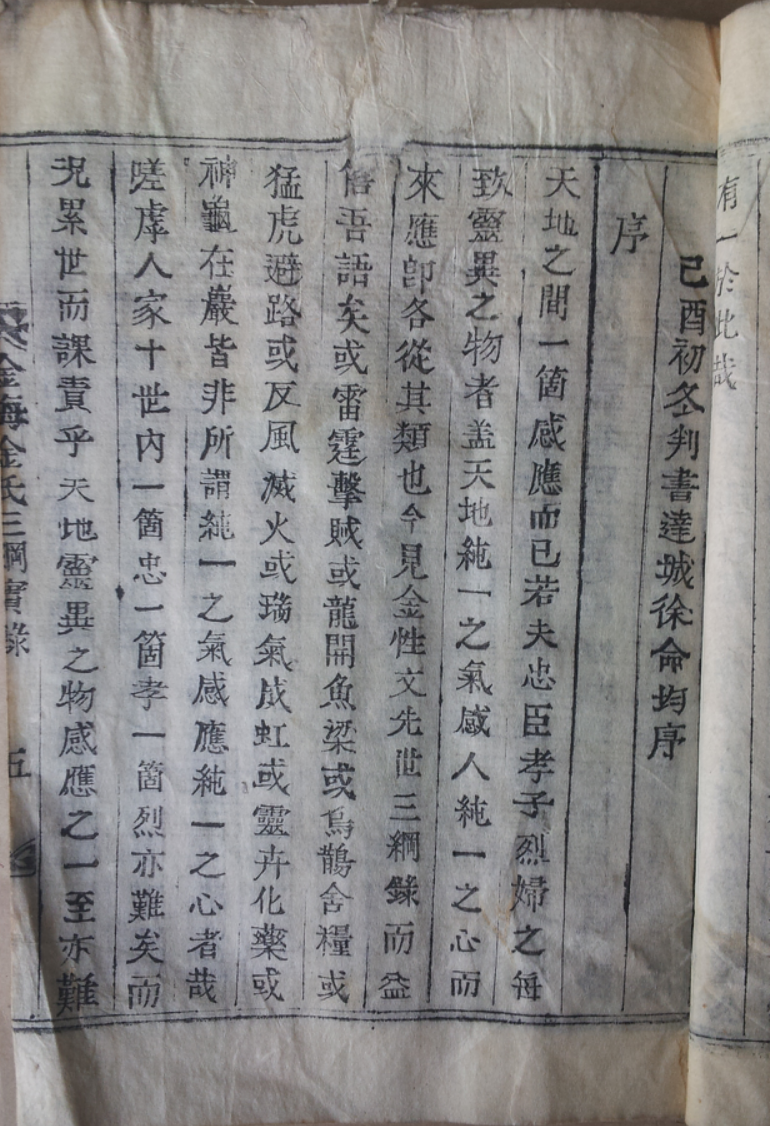 有一於此哉
己酉初冬判書達城徐命均序
序
天地之間一箇感應而已若夫忠臣孝子烈婦之每
致靈異之物者盖天地純一之氣感人純一之心而
來應卽各從其類也今見金性文先世三綱錄而益
信吾語矣或雷霆擊賊或龍開魚梁或烏鵲舍糧或
猛虎避路或反風滅火或瑞氣成虹或靈卉化藥或
神龜在巖皆非所謂純一之氣感應純一之心者哉
嗟虖人家十世內一箇忠一箇孝一箇烈亦難矣而
況累世而課責乎天地靈異之物感應之一至亦難
金海金氏三綱實錄
五